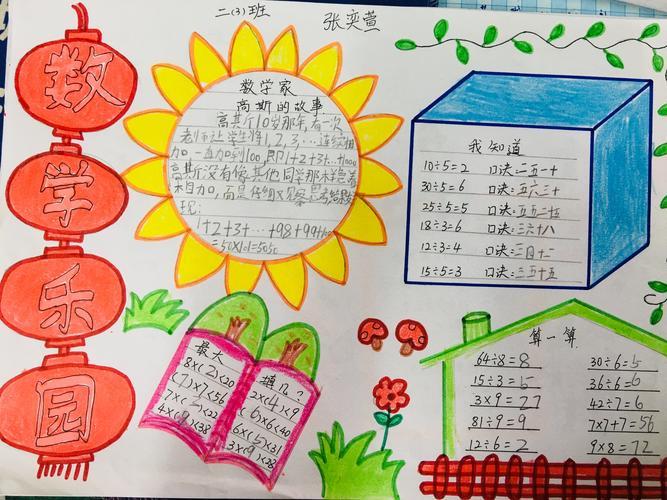 二(3)班
张奕萱
数学乐园
数学家
高斯的故事
高其斤10岁那年,有一次
老师让学生将1,2,3,…连续相
加一直加到100,即1+2+3+…+100。
高斯没有像其他同学那样急着
相加,而是仔细观察、思考
现:
1+2+3+…+98+99+100
=50×101=5050
我知道
10÷5=2 口诀:二五一十
30÷5=6 口诀:五六三十
25÷5=5 口诀:五五二十五
18÷3=6 口诀:三六十八
12÷3=4 口诀:三四十二
15÷5=3 口诀:三五十五
最大
8×(2)<20
(7)×7<56
7×(3)<22
4×(9)<38
填几?
2×(4)<9
(6)×6<40
6×(5)<31
3×(9)<28
算一算
64÷8=8 30÷6=5
15÷3=5 36÷6=6
3×9=27 42÷7=6
81÷9=9 7×7+7=56
12÷6=2 9×8=72